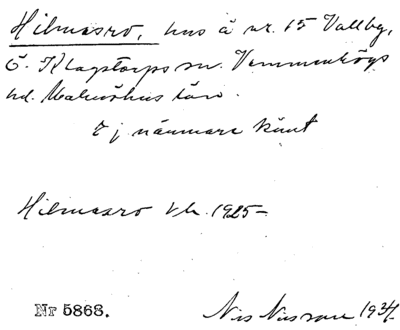 Hilmasro, hus å nr. 15 Vallby,
Ö. Klagstorps sn. Vemmenhögs
hd. Malmöhus län.
Ej närmare känt
Hilmasro vh. 1925-
Nr 5863. Nis Nilsson 1934.